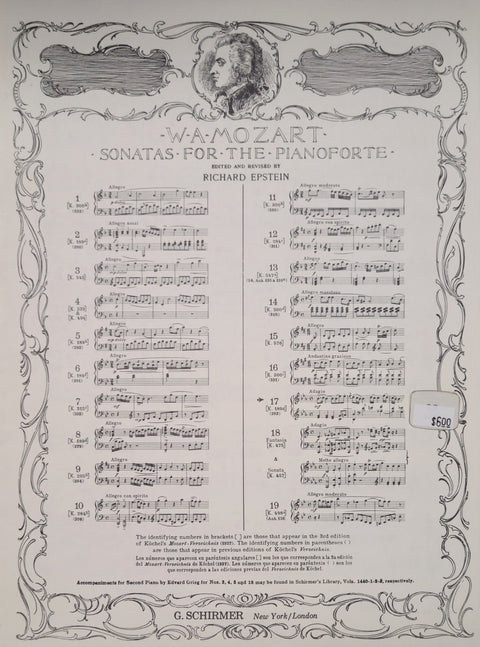 ·W·A·MOZART·
·SONATAS·FOR·THE·PIANOFORTE·
EDITED AND REVISED BY
RICHARD EPSTEIN
1
Allegro
2
Allegro assai
3
[K. 545]
Allegro
4
Allegro
5
Allegro
6
Allegro
7
Allegro
8
Allegro
9
Allegro
10
Allegro con spirito
11
Allegro moderato
12
Allegro con spirito
13
Allegro
14
Allegro maestoso
15
Allegro
16
Andantino grazioso
17
Adagio
18
Fantasia
[K. 475]
Adagio
&
Sonata
[K. 457]
Molto allegro
19
Allegro moderato
$6.00
The identifying numbers in brackets [ ] are those that appear in the 3rd edition
of Köchel's Mozart-Verzeichnis (1937). The identifying numbers in parenthesis ( )
are those that appear in previous editions of Köchel's Verzeichnis.
Los números que aparecen en paréntesis angulares [ ] son los que corresponden a la 3a edición
del Mozart-Verzeichnis de Köchel (1937). Los números que aparecen en paréntesis ( ) son los
que corresponden a las ediciones previas del Verzeichnis de Köchel.
Accompaniments for Second Piano by Edvard Grieg for Nos. 3, 4, 5 and 18 may be found in Schirmer's Library, Vols. 1440-1-2-3, respectively.
G. SCHIRMER New York/London